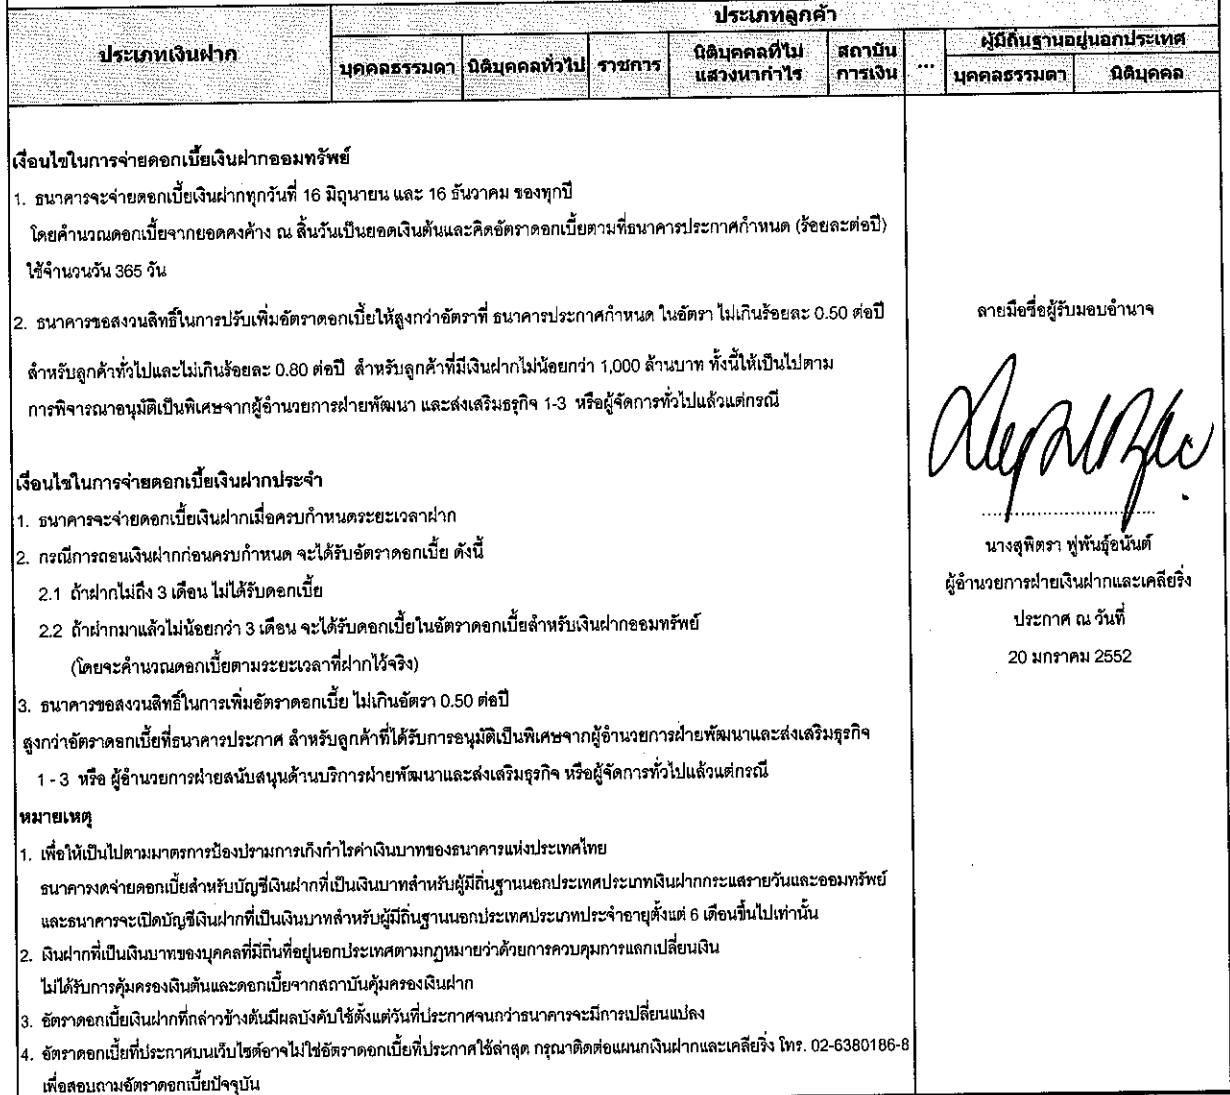 ประเภทลูกค้า
ประเภทเงินฝาก
ผู้มีถิ่นฐานอยู่นอกประเทศ
บุคคลธรรมดา นิติบุคคลทั่วไป ราชการ นิติบุคคลที่ไม่แสวงหากำไร สถาบันการเงิน ... บุคคลธรรมดา นิติบุคคล
เงื่อนไขในการจ่ายดอกเบี้ยเงินฝากออมทรัพย์
1. ธนาคารจะจ่ายดอกเบี้ยเงินฝากทุกวันที่ 16 มิถุนายน และ 16 ธันวาคม ของทุกปี
โดยคำนวณดอกเบี้ยจากยอดคงค้าง ณ สิ้นวันเป็นยอดเงินต้นและคิดอัตราดอกเบี้ยตามที่ธนาคารประกาศกำหนด (ร้อยละต่อปี)
ใช้จำนวนวัน 365 วัน
2. ธนาคารขอสงวนสิทธิ์ในการปรับเพิ่มอัตราดอกเบี้ยให้สูงกว่าอัตราที่ ธนาคารประกาศกำหนด ในอัตรา ไม่เกินร้อยละ 0.50 ต่อปี
สำหรับลูกค้าทั่วไปและไม่เกินร้อยละ 0.80 ต่อปี สำหรับลูกค้าที่มีเงินฝากไม่น้อยกว่า 1,000 ล้านบาท ทั้งนี้ให้เป็นไปตาม
การพิจารณาอนุมัติเป็นพิเศษจากผู้อำนวยการฝ่ายพัฒนา และส่งเสริมธุรกิจ 1-3 หรือผู้จัดการทั่วไปแล้วแต่กรณี
เงื่อนไขในการจ่ายดอกเบี้ยเงินฝากประจำ
1. ธนาคารจะจ่ายดอกเบี้ยเงินฝากเมื่อครบกำหนดระยะเวลาฝาก
2. กรณีการถอนเงินฝากก่อนครบกำหนด จะได้รับอัตราดอกเบี้ย ดังนี้
2.1 ถ้าฝากไม่ถึง 3 เดือน ไม่ได้รับดอกเบี้ย
2.2 ถ้าฝากมาแล้วไม่น้อยกว่า 3 เดือน จะได้รับดอกเบี้ยในอัตราดอกเบี้ยสำหรับเงินฝากออมทรัพย์
(โดยจะคำนวณดอกเบี้ยตามระยะเวลาที่ฝากไว้จริง)
3. ธนาคารขอสงวนสิทธิ์ในการเพิ่มอัตราดอกเบี้ย ไม่เกินอัตรา 0.50 ต่อปี
สูงกว่าอัตราดอกเบี้ยที่ธนาคารประกาศ สำหรับลูกค้าที่ได้รับการอนุมัติเป็นพิเศษจากผู้อำนวยการฝ่ายพัฒนาและส่งเสริมธุรกิจ
1 - 3 หรือ ผู้อำนวยการฝ่ายสนับสนุนด้านบริการฝ่ายพัฒนาและส่งเสริมธุรกิจ หรือผู้จัดการทั่วไปแล้วแต่กรณี
หมายเหตุ
1. เพื่อให้เป็นไปตามมาตรการป้องปรามการเก็งกำไรค่าเงินบาทของธนาคารแห่งประเทศไทย
ธนาคารงดจ่ายดอกเบี้ยสำหรับบัญชีเงินฝากที่เป็นเงินบาทสำหรับผู้มีถิ่นฐานนอกประเทศประเภทเงินฝากกระแสรายวันและออมทรัพย์
และธนาคารจะเปิดบัญชีเงินฝากที่เป็นเงินบาทสำหรับผู้มีถิ่นฐานนอกประเทศประเภทประจำอายุตั้งแต่ 6 เดือนขึ้นไปเท่านั้น
2. เงินฝากที่เป็นเงินบาทของบุคคลที่มีถิ่นที่อยู่นอกประเทศตามกฎหมายว่าด้วยการควบคุมการแลกเปลี่ยนเงิน
ไม่ได้รับการคุ้มครองเงินต้นและดอกเบี้ยจากสถาบันคุ้มครองเงินฝาก
3. อัตราดอกเบี้ยเงินฝากที่กล่าวข้างต้นมีผลบังคับใช้ตั้งแต่วันที่ประกาศจนกว่าธนาคารจะมีการเปลี่ยนแปลง
4. อัตราดอกเบี้ยที่ประกาศบนเว็บไซต์อาจไม่ใช่อัตราดอกเบี้ยที่ประกาศใช้ล่าสุด กรุณาติดต่อแผนกเงินฝากและเคลียริ่ง โทร. 02-6380186-8
เพื่อสอบถามอัตราดอกเบี้ยปัจจุบัน
ลายมือชื่อผู้รับมอบอำนาจ
นางสุพิตรา ฟูพันธุ์อนันต์
ผู้อำนวยการฝ่ายเงินฝากและเคลียริ่ง
ประกาศ ณ วันที่
20 มกราคม 2552